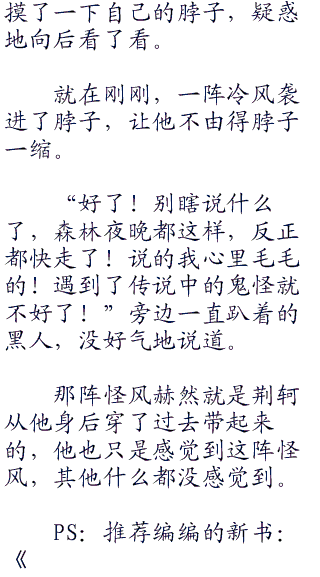 摸了一下自己的脖子，疑惑
地向后看了看。
就在刚刚，一阵冷风袭
进了脖子，让他不由得脖子
一缩。
“好了！别瞎说什么
了，森林夜晚都这样，反正
都快走了！说的我心里毛毛
的！遇到了传说中的鬼怪就
不好了！”旁边一直趴着的
黑人，没好气地说道。
那阵怪风赫然就是荆轲
从他身后穿了过去带起来
的，他也只是感觉到这阵怪
风，其他什么都没感觉到。
PS：推荐编编的新书：
《